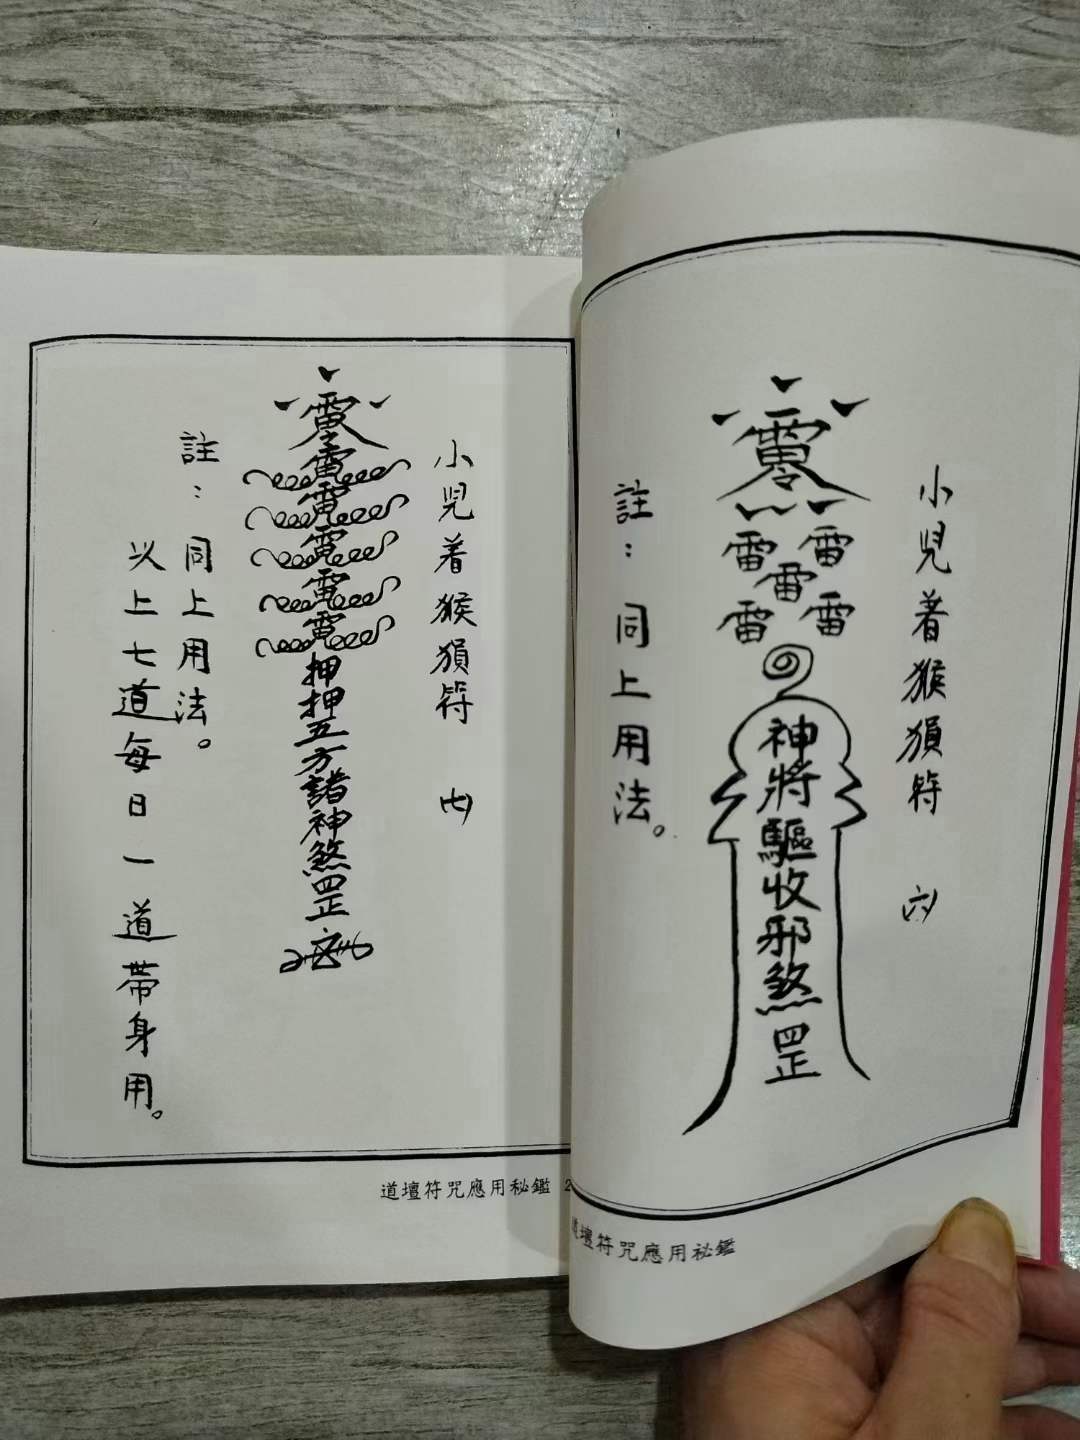 小児着猴獱符 六
雷
雷
雷
雷
雷
神將驅收邪煞罡
註：同上用法。
道壇符咒應用秘鑑
小児着猴獱符 七
押押五方諸神煞罡
註：同上用法。
以上七道每日一道帶身用。
道壇符咒應用秘鑑 2